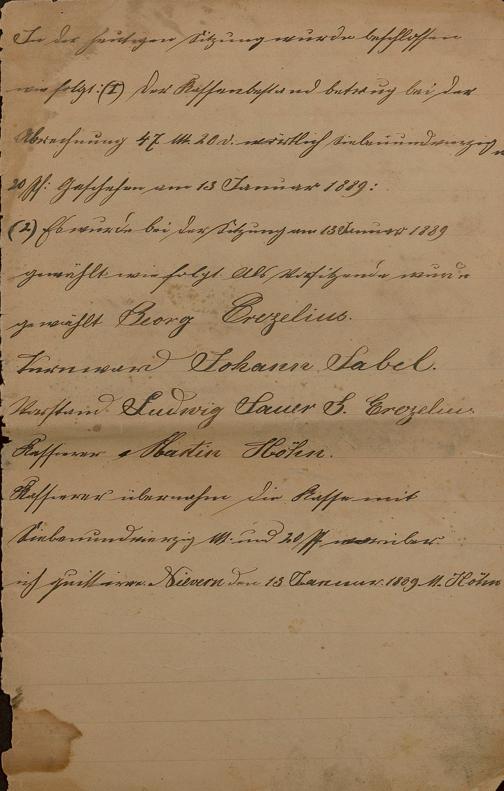 In der heutigen Sitzung wurde beschlossen
wie folgt: (1) Der Kassenbestand betrug bei der
Abrechnung 47 M. 20 d. wörtlich siebenundvierzig
20 Pf: Geschehen am 13 Januar 1889:
(2) Es wurde bei der Sitzung am 13 Januar 1889
gewählt wie folgt Als Vorsitzende wurde
gewählt Georg Crezelius.
Turnwart Johann Sabel.
Vorstand Ludwig Sauer J. Crezelius
Kassierer Martin Höhn.
Kassierer übernahm die Kasse mit
Siebenundvierzig M. und 20 Pf worüber
ich quittire. Nievern den 13 Januar. 1889 M. Höhn